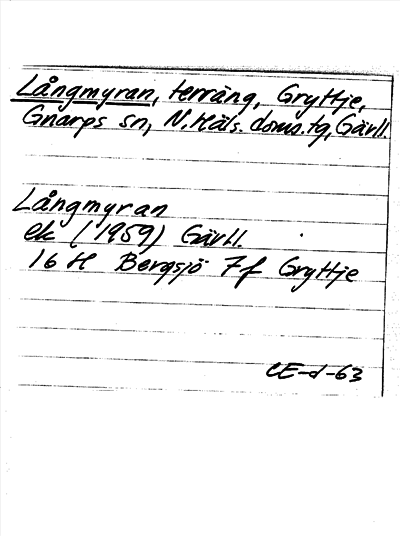 Långmyran, terräng, Gryttje,
Gnarps sn, N. Häls. doms.tg, Gävll.
Långmyran
ek (1959) Gävll.
16 H Bergsjö 7f Gryttje
CE-d-63